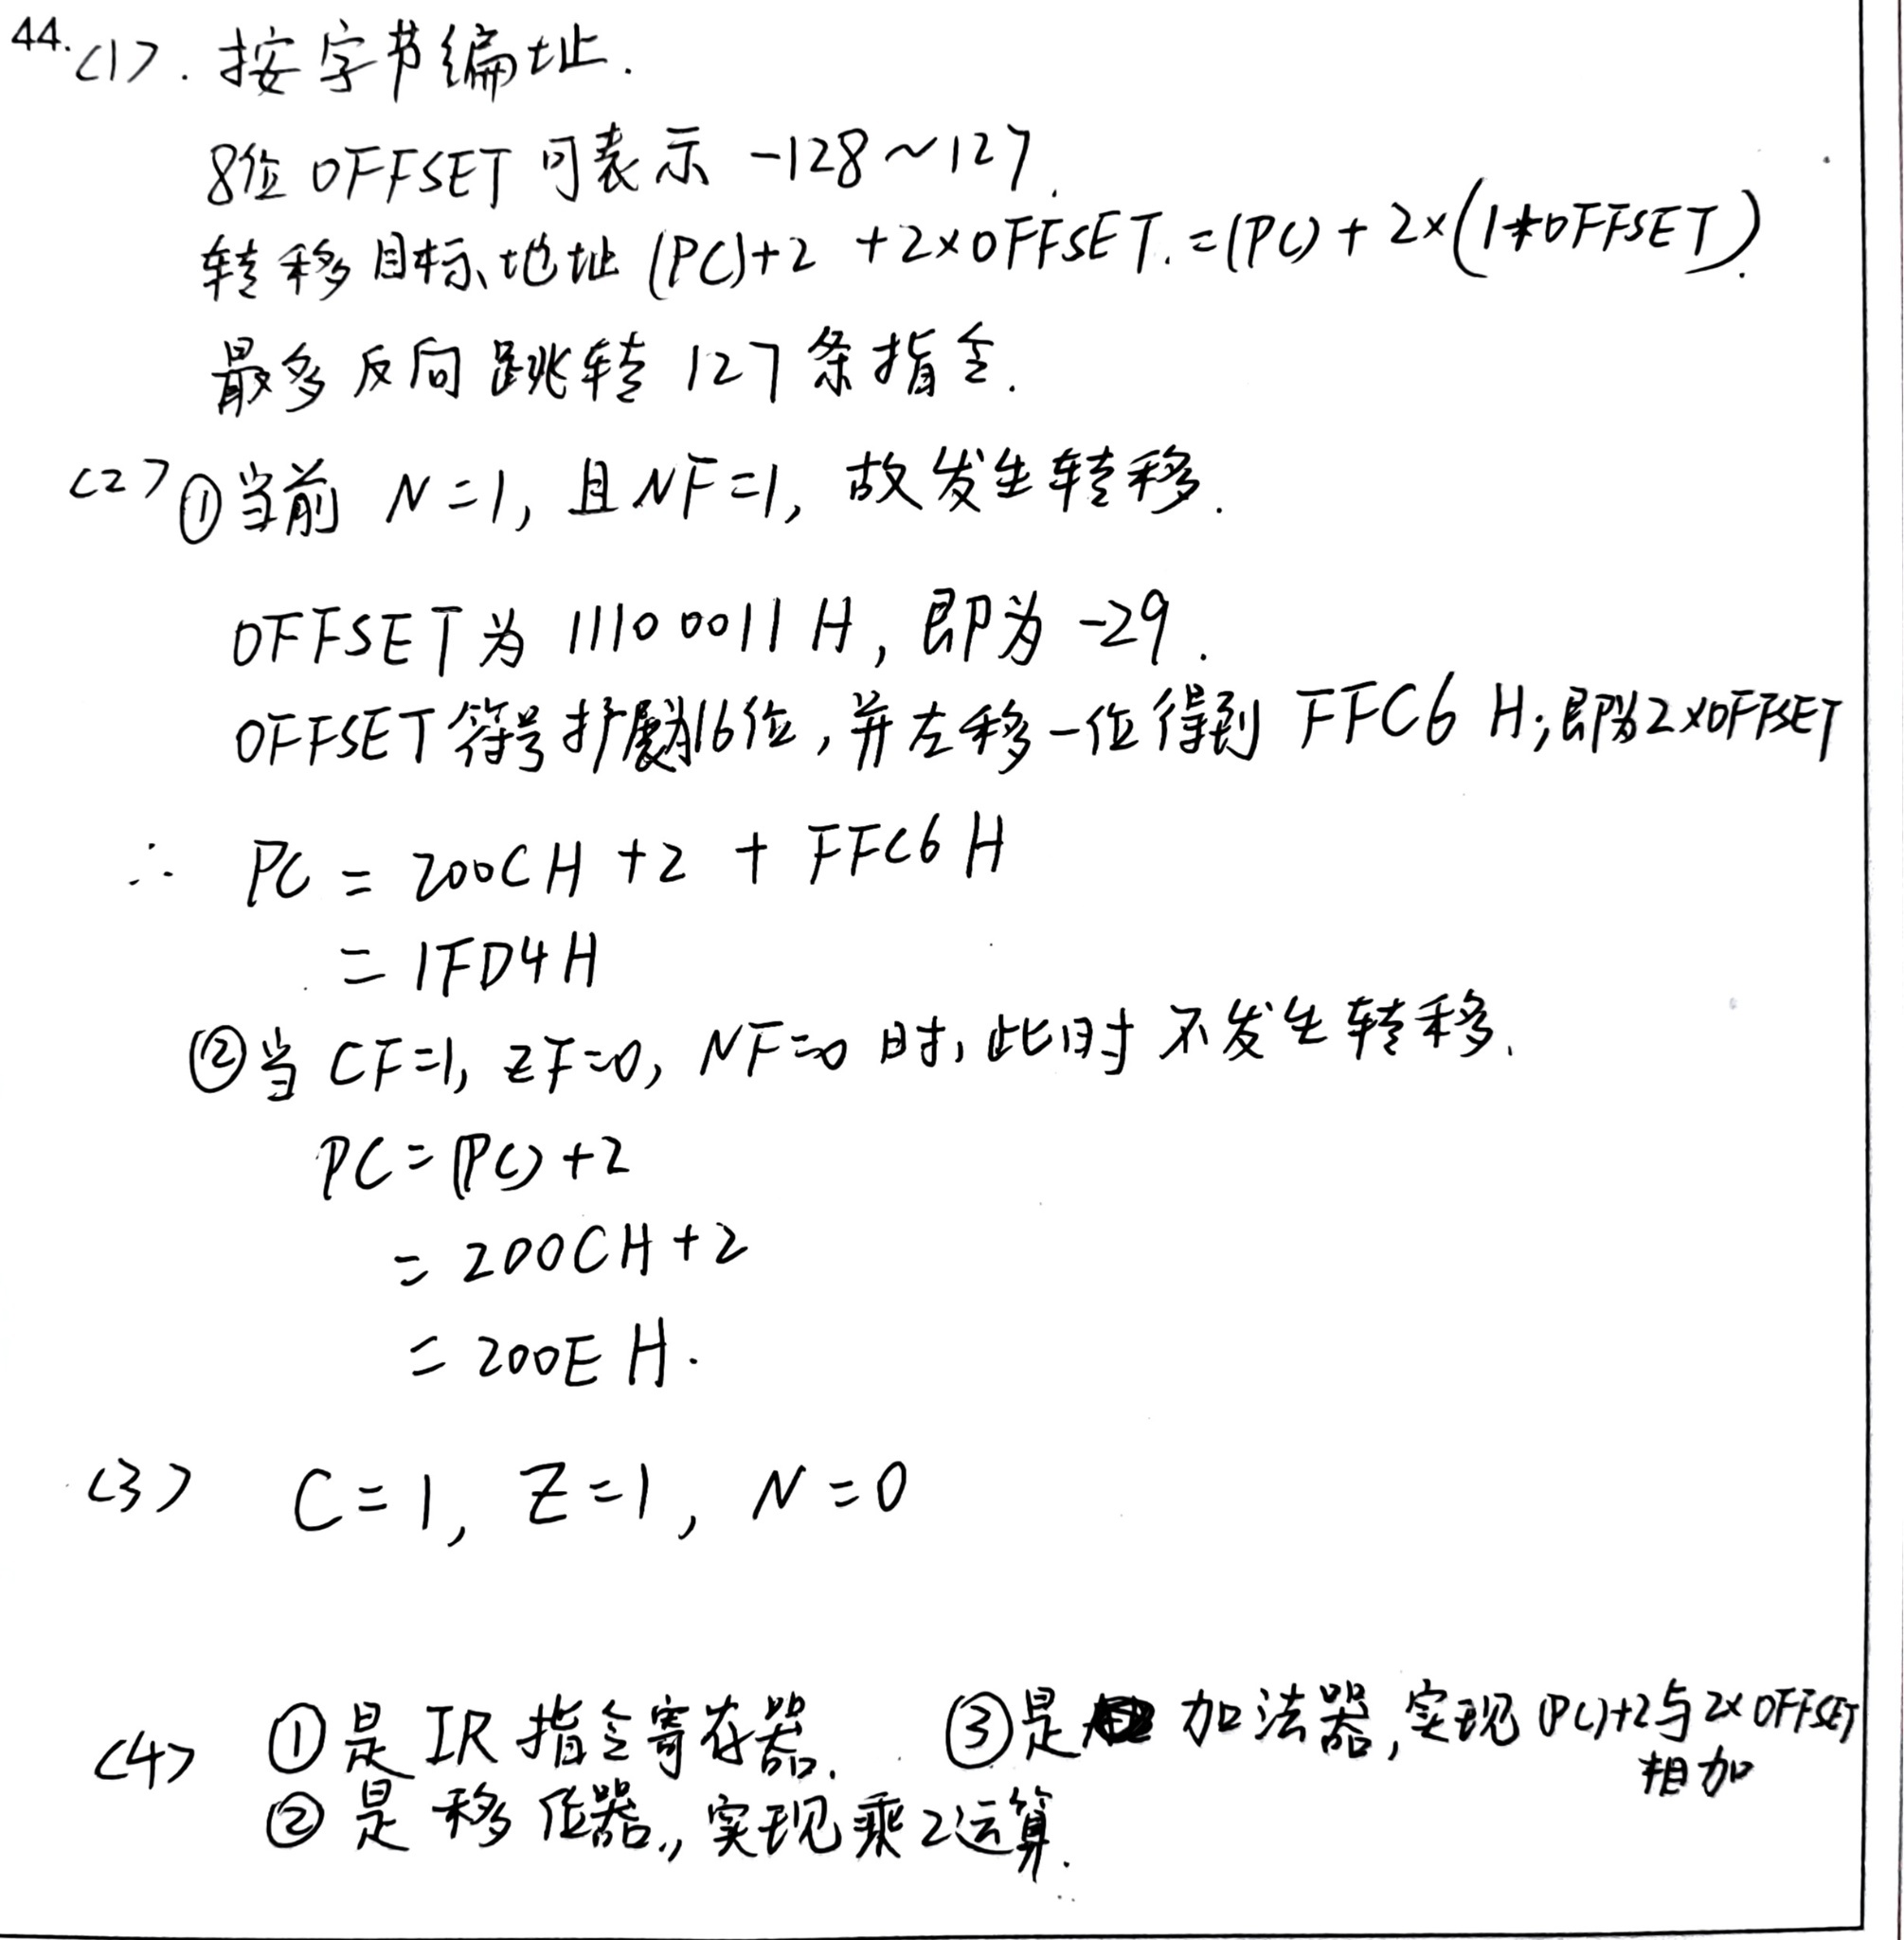 44.(1). 按字节编址.
8位 OFFSET 可表示 -128~127.
转移目标地址 (PC)+2 +2×OFFSET.=(PC)+2×(1+OFFSET).
最多反向跳转 127 条指令.
(2) ①当前 N=1, 且NF=1, 故发生转移.
OFFSET为 11100011H, 即为 -29.
OFFSET符号扩展为16位,并左移一位得到 FFC6 H;即为2×OFFSET
∴ PC = 200CH +2 + FFC6H
= 1FD4H
②当 CF=1, ZF=0, NF=0 时,此时 不发生转移.
PC=(PC)+2
= 200CH+2
= 200E H.
(3) C=1, Z=1, N=0
(4) ①是 IR 指令寄存器. ③是 加法器,实现(PC)+2与2×OFFSET
相加
②是 移位器., 实现乘2运算.